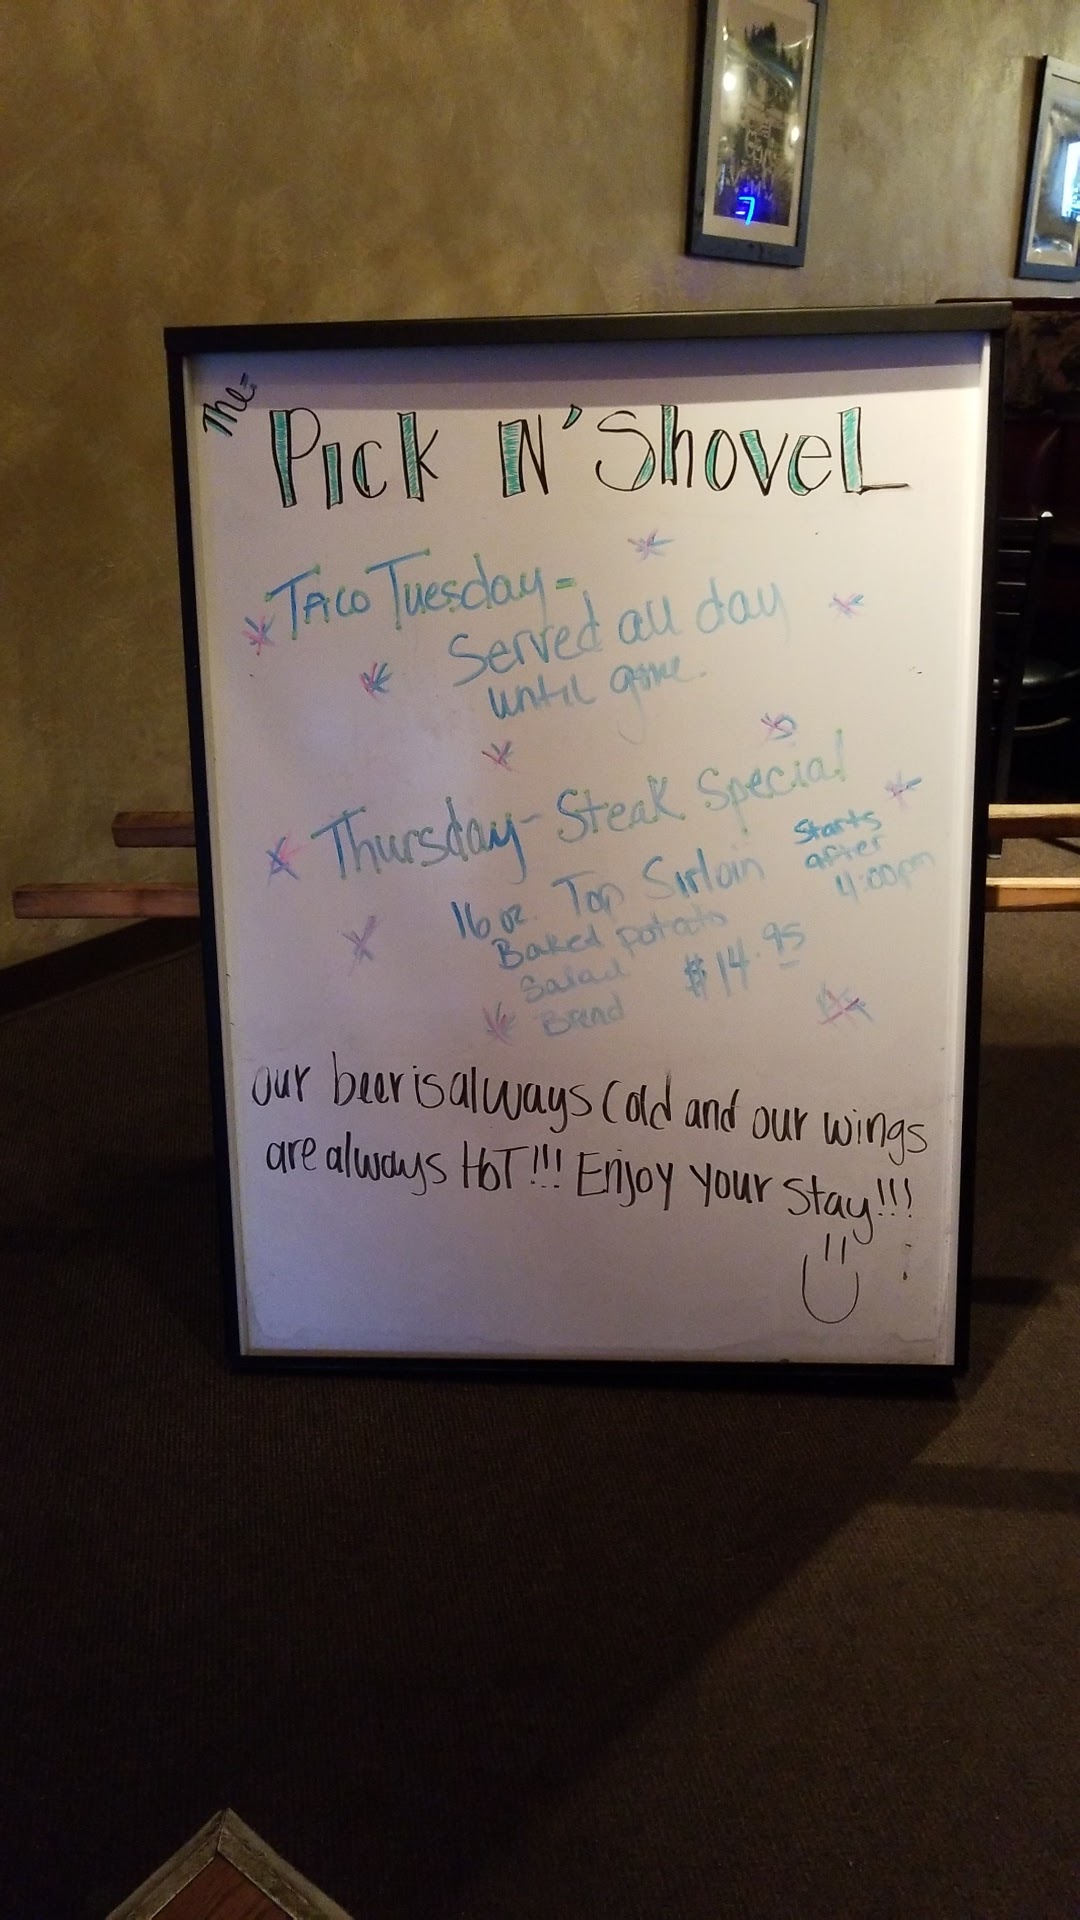 The
Pick N' Shovel
Taco Tuesday -
Served all day
until gone.
Thursday - Steak Special
Starts
after
4:00pm
16 oz. Top Sirloin
Baked potato
Salad
Bread
$14.95
our beer is always cold and our wings
are always HOT!!! Enjoy your stay!!!